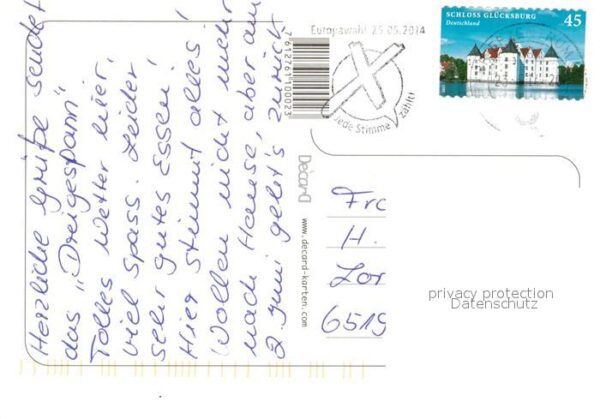 Herzliche Grüße sendet
das „Dreigespann".
Tolles Wetter hier,
viel Spass. Leider,
sehr gutes Essen!
Hier stimmt alles!
Wollen nicht mehr
nach Hause, aber am
2. Juni geht's zurück
7612761100023
Europawahl 25.05.2014
Jede Stimme zählt!
SCHLOSS GLÜCKSBURG 45
Deutschland
Decard
www.decard-karten.com
Frc
H.
Lor
6519
privacy protection
Datenschutz